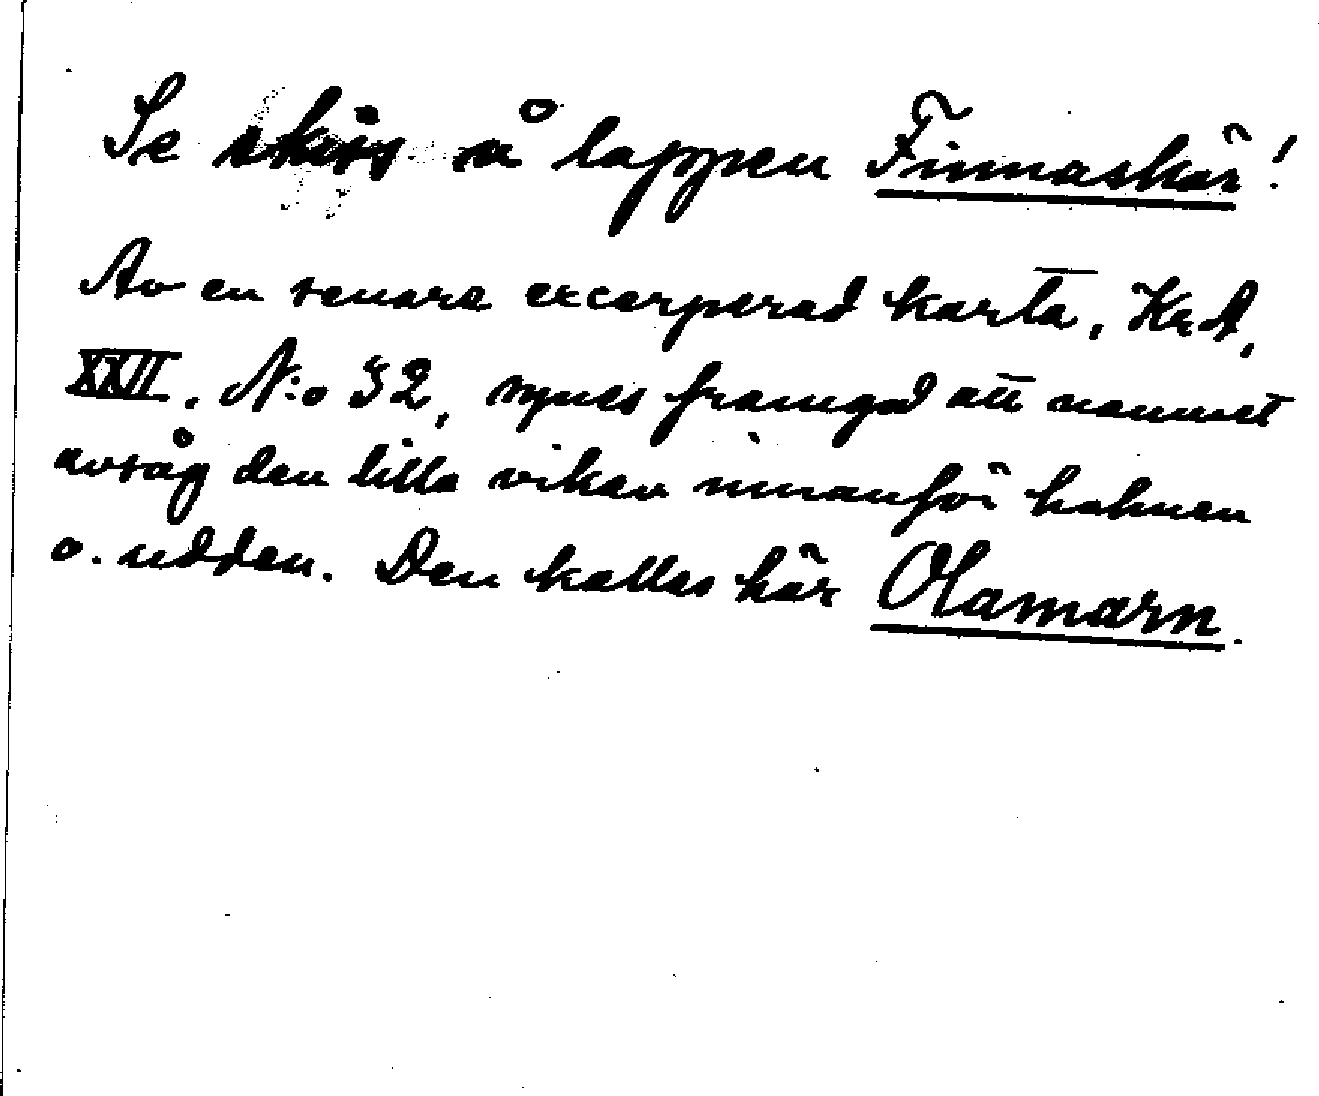 Se skiss å lappen Finnaskär!
Av en senare excerperad karta, KrA,
XXII. N:o 32, synes framgå att namnet
avsåg den lilla viken innanför holmen
o. udden. Den kallas här Olamarn.